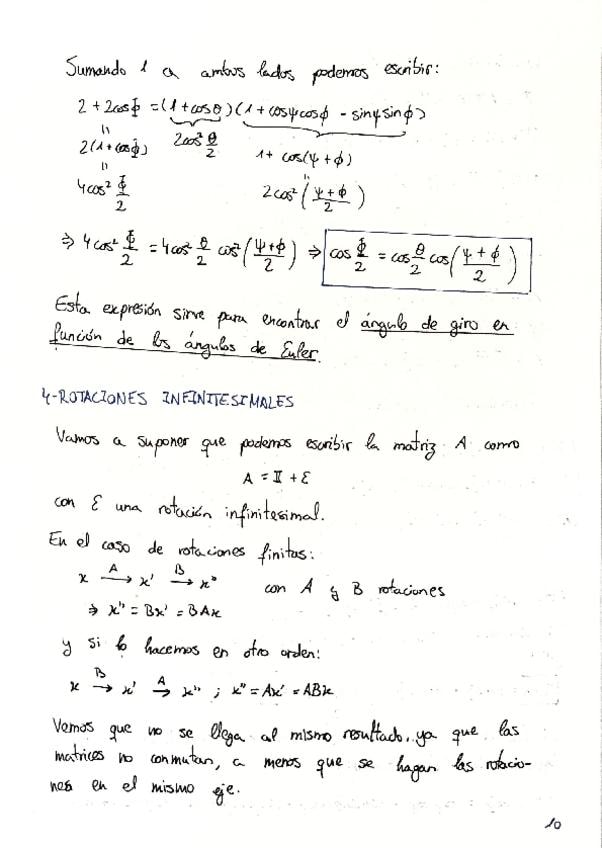 Sumando 1 a ambos lados podemos escribir:
2 + 2cosΦ = (1 + cosθ)(1 + cosψcosϕ - sinψsinϕ)
2(1 + cosΦ)
2cos² θ/2
1 + cos(ψ + ϕ)
4cos² Φ/2
2cos² ((ψ + ϕ)/2)
⇒ 4cos² Φ/2 = 4cos² θ/2 cos² ((ψ + ϕ)/2) ⇒ cos Φ/2 = cos θ/2 cos ((ψ + ϕ)/2)
Esta expresión sirve para encontrar el ángulo de giro en
función de los ángulos de Euler.
4-ROTACIONES INFINITESIMALES
Vamos a suponer que podemos escribir la matriz A como
A = 𝕀 + ε
con ε una rotación infinitesimal.
En el caso de rotaciones finitas:
x —A→ x' —B→ x'' con A y B rotaciones
⇒ x'' = Bx' = BAx
y si lo hacemos en otro orden:
x —B→ x' —A→ x'' ; x'' = Ax' = ABx
Vemos que no se llega al mismo resultado, ya que las
matrices no conmutan, a menos que se hagan las rotacio-
nes en el mismo eje.
10